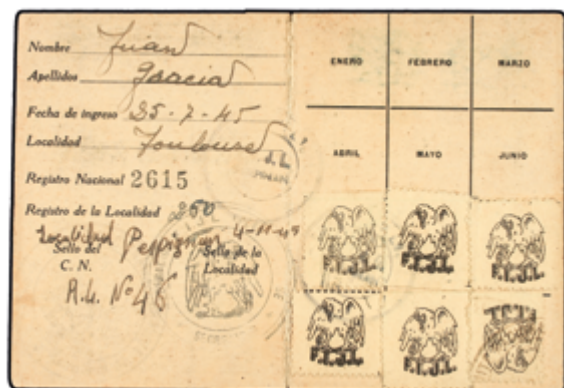 Nombre Juan
Apellidos Garcia
Fecha de ingreso 25-7-45
Localidad Toulouse
Registro Nacional 2615
Registro de la Localidad 250
Localidad Perpignan 4-11-49
Sello del Sello de la
C. N. Localidad
R.L. Nº 46
ENERO FEBRERO MARZO
ABRIL MAYO JUNIO
F.I.J.L. F.I.J.L. F.I.J.L.
F.I.J.L. F.I.J.L. F.I.J.L.